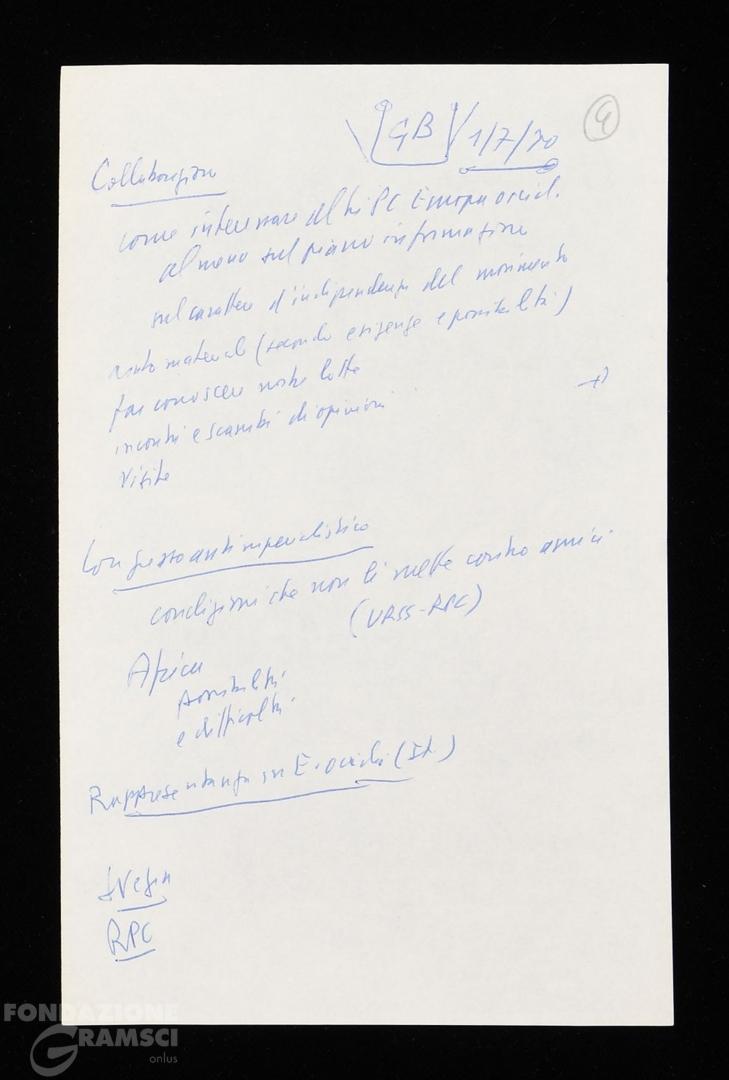 GB 1/7/80
9
Collaborazione
come interessare altri PC Europa occid.
almeno sul piano informazione
sul carattere d'indipendenza del movimento
aiuto materiale (secondo esigenze e possibilità)
far conoscere nostre lotte
incontri e scambi di opinioni
Visite
Congresso antimperialistico
condizioni che non li mette contro amici
(URSS-RPC)
Africa
possibilità
e difficoltà
Rappresentanza in E. occid. (It.)
Svezia
RPC
FONDAZIONE
GRAMSCI
onlus